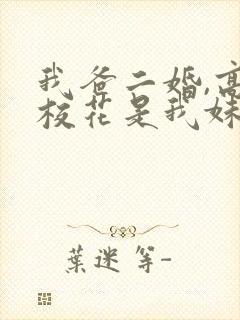 我爸二婚,高
校花是我妹
葉迷 等-